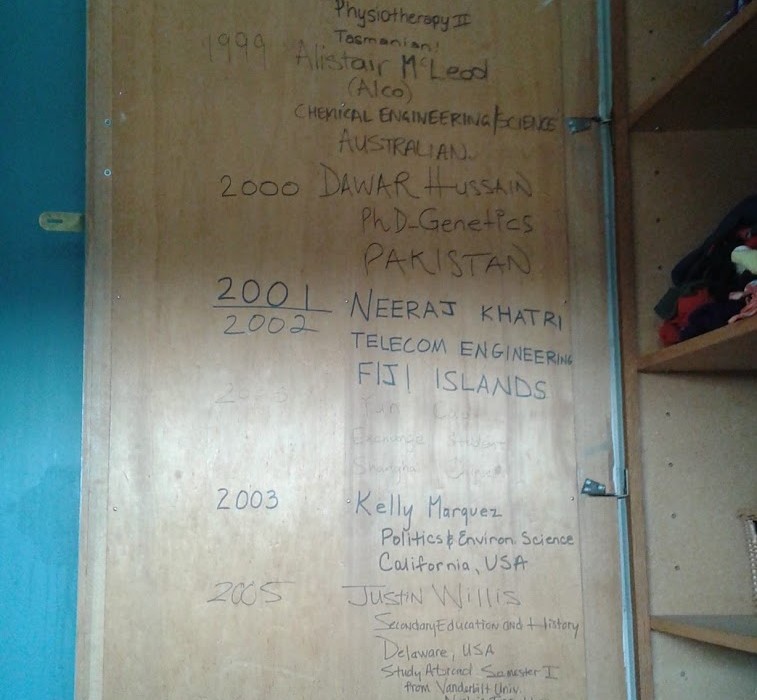 Physiotherapy II
Tasmanian!
1999 Alistair McLeod
(Alco)
CHEMICAL ENGINEERING/SCIENCE
AUSTRALIAN.
2000 DAWAR HUSSAIN
PhD-Genetics
PAKISTAN
2001 NEERAJ KHATRI
2002
TELECOM ENGINEERING
FIJI ISLANDS
Exchange Student
2003 Kelly Marquez
Politics & Environ. Science
California, USA
2005 JUSTIN Willis
Secondary Education and History
Delaware, USA
Study Abroad Semester I
from Vanderbilt Univ.